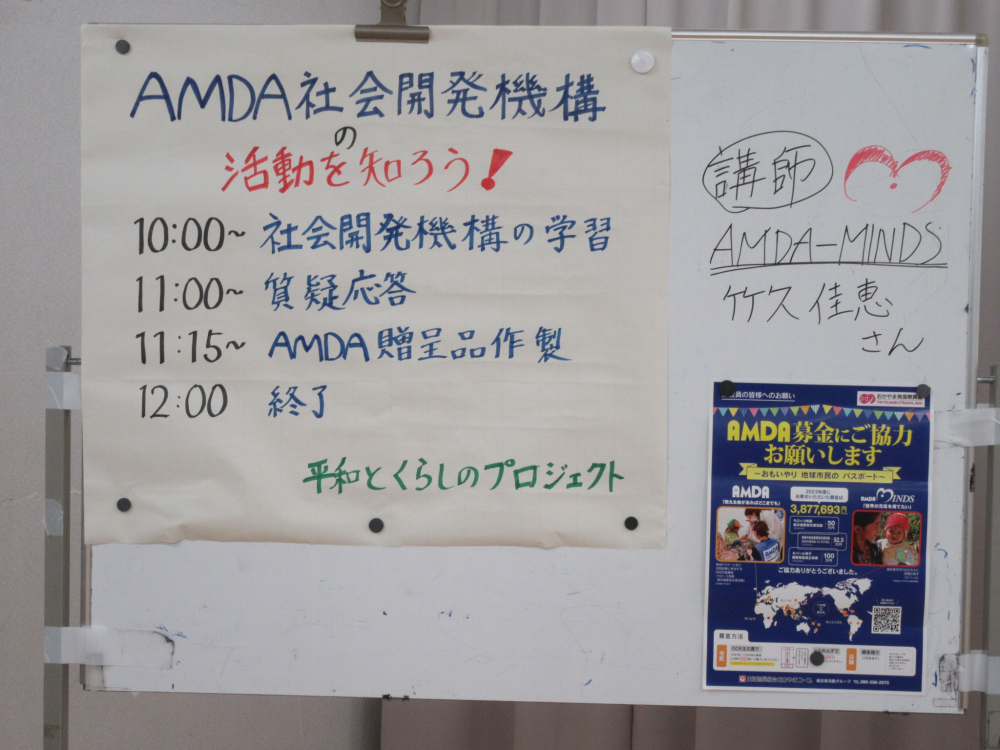 AMDA社会開発機構
の
活動を知ろう!
10:00~ 社会開発機構の学習
11:00~ 質疑応答
11:15~ AMDA贈呈品作製
12:00 終了
平和とくらしのプロジェクト
講師
AMDA-MINDS
竹久佳恵
さん
員の皆様へのお願い
AMDA募金にご協力
お願いします
~おもいやり 地球市民の パスポート~
AMDA
AMDA MINDS
3,877,693円
50万円
52.5万円
100万円
ご協力ありがとうございました。
募金方法